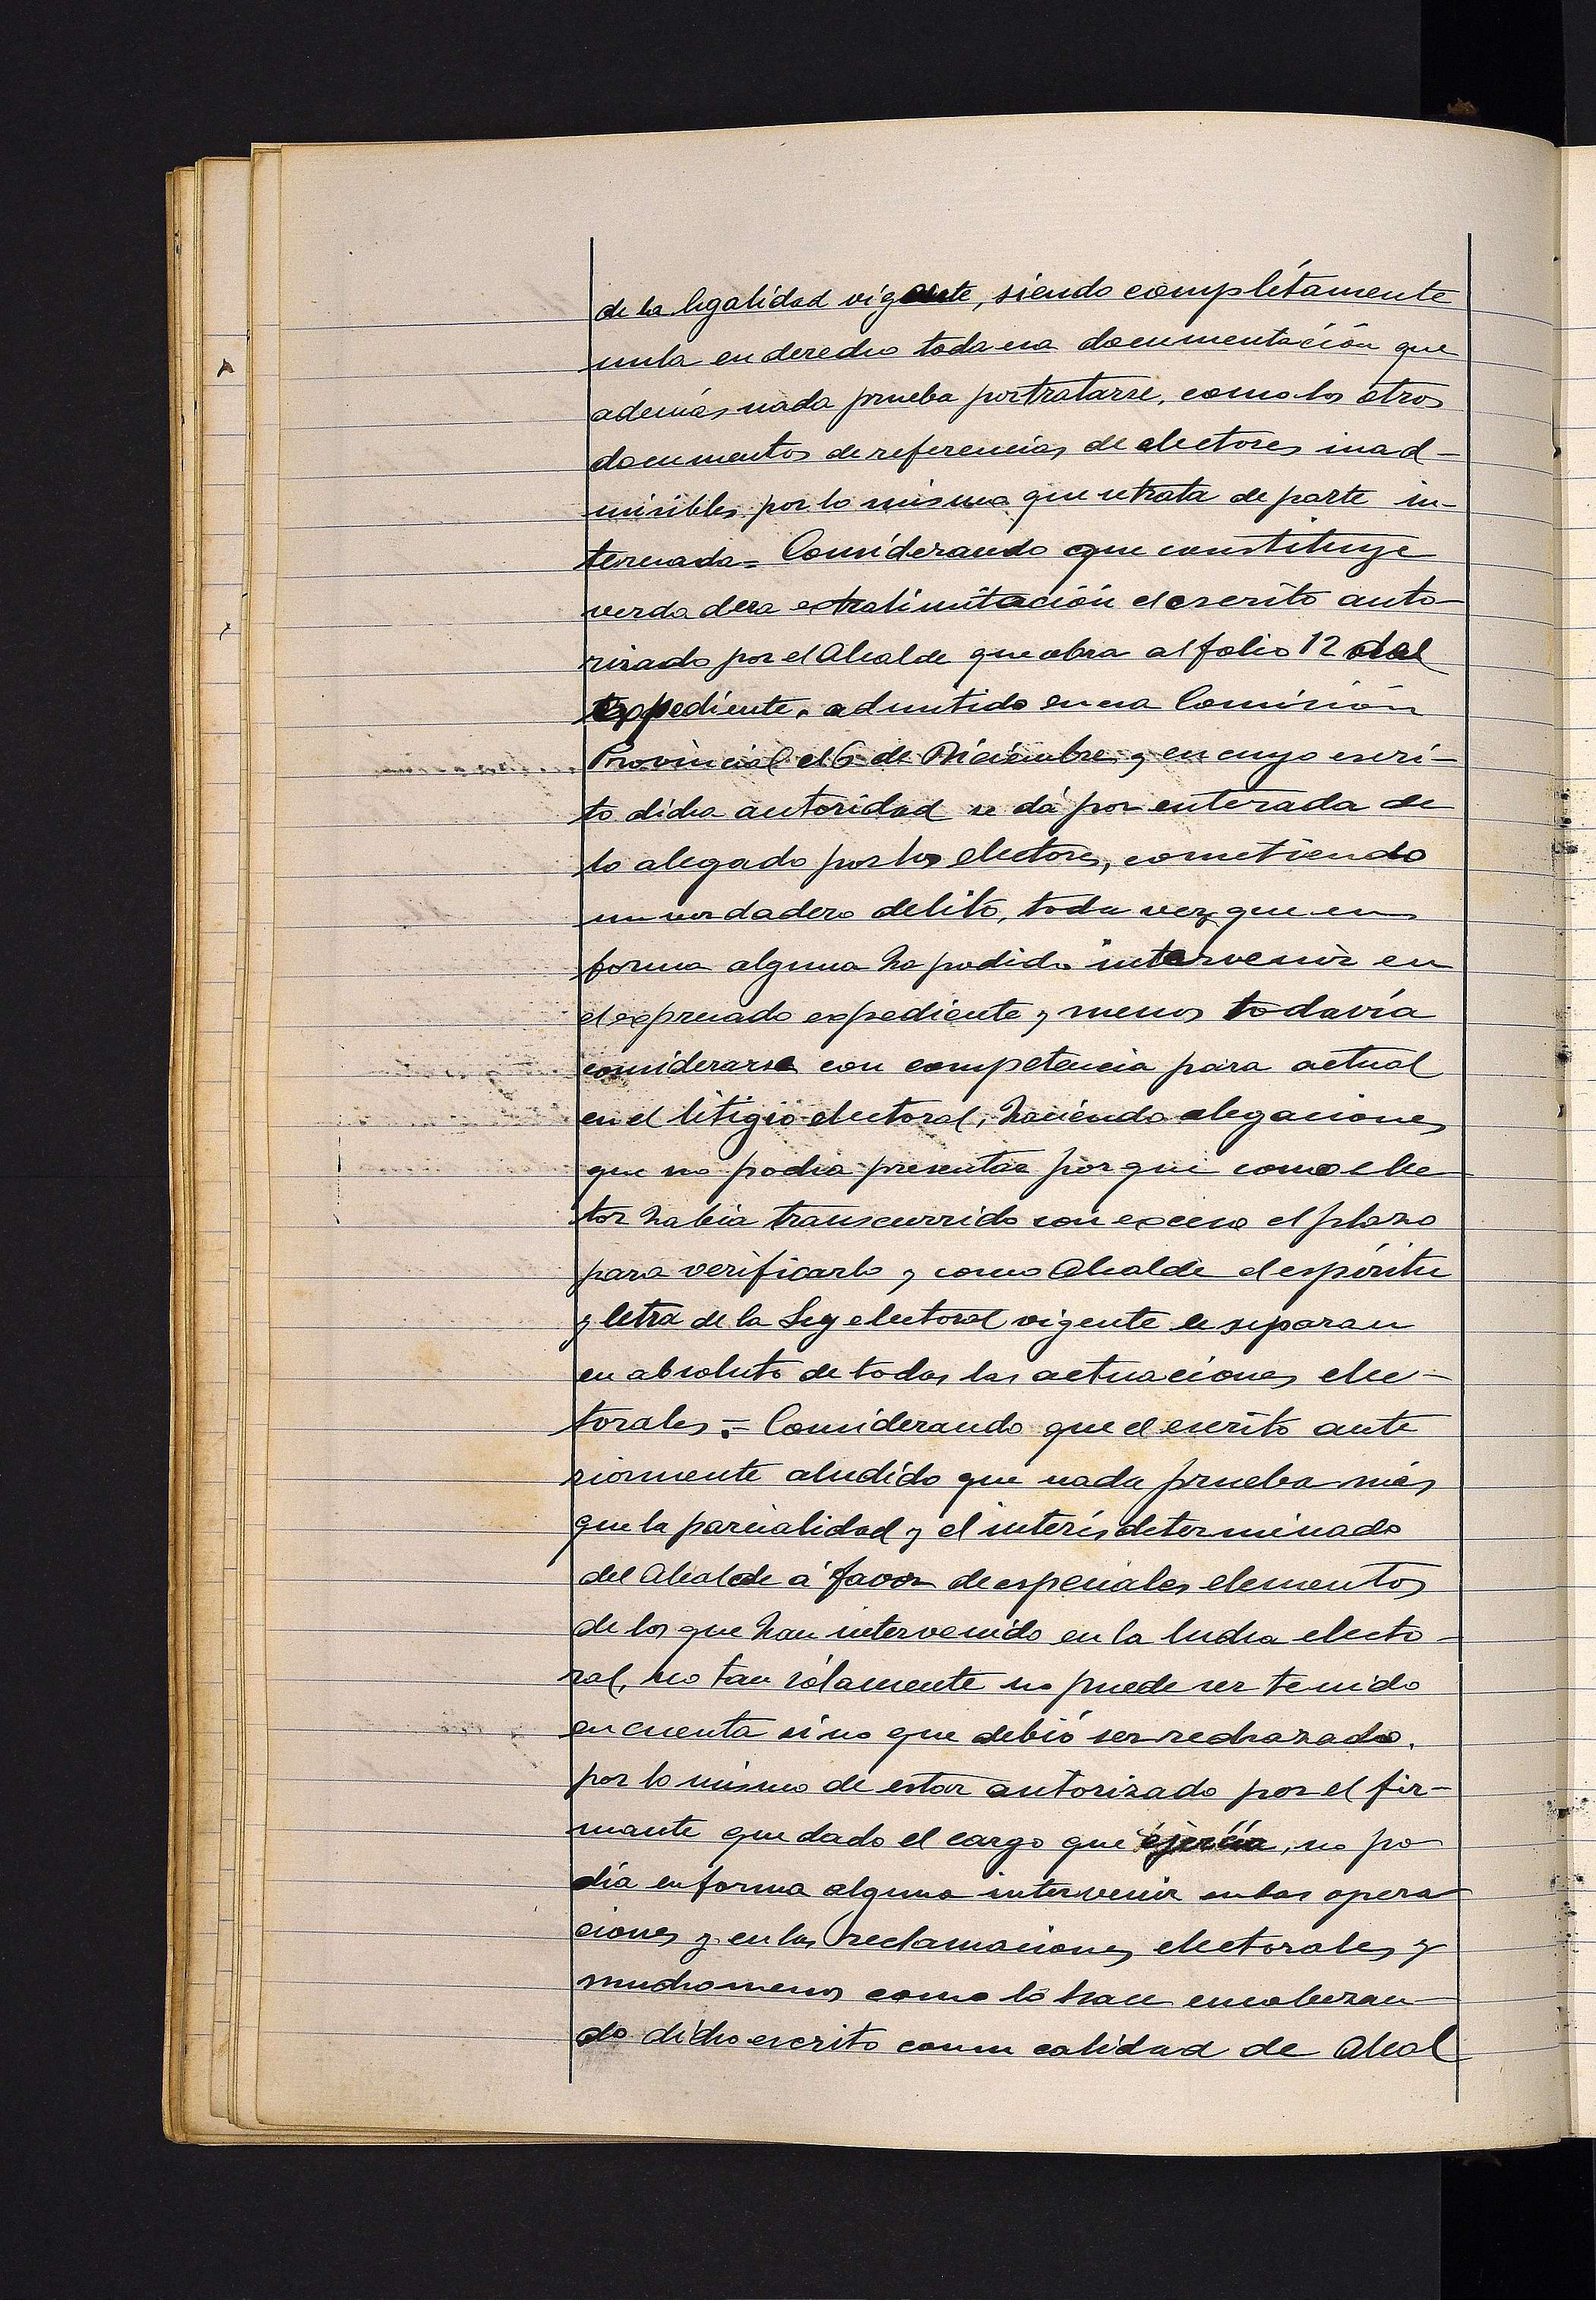 de la legalidad vigente, siendo complétamente
nula en derecho toda esa documentación que
además nada prueba por tratarse, como los otros
documentos de referencias de electores inad-
misibles por lo mismo que se trata de parte in-
teresada= Considerando que constituye
verdadera extralimitación el escrito auto-
rizado por el Alcalde que obra al folio 12 del
expediente, admitido en esa Comisión
Provincial el 6 de Diciembre y en cuyo escri-
to dicha autoridad se dá por enterada de
lo alegado por los electores, cometiendo
un verdadero delito, toda vez que en
forma alguna ha podido intervenir en
el expresado expediente y menos todavía
considerarse con competencia para actual
en el litigio electoral, haciendo alegaciones
que no podia presentar por que como elec
tor habia transcurrido con exceso el plazo
para verificarlo y como Alcalde el espíritu
y letra de la Ley electoral vigente le separan
en absoluto de todas las actuaciones elec-
torales.= Considerando que el escrito ante
riormente aludido que nada prueba más
que la parcialidad y el interés determinado
del Alcalde á favor de especiales elementos
de los que han intervenido en la lucha electo-
ral, no tan sólamente no puede ser tenido
en cuenta sino que debió ser rechazado,
por lo mismo de estar autorizado por el fir-
mante que dado el cargo que ejercía, no po
día en forma alguna intervenir en las opera
ciones y en las reclamaciones electorales y
mucho menos como lo hace encabezan
do dicho escrito con su calidad de Alcal